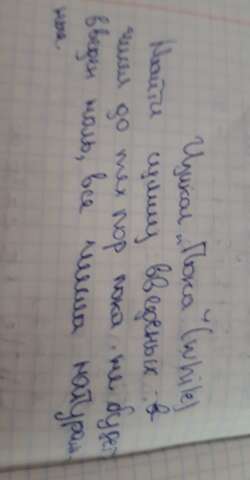 Цикл „Пока" (while)
Найти сумму введеных
чисел до тех пор пока не будет
введен ноль, все числа натурал
ные.